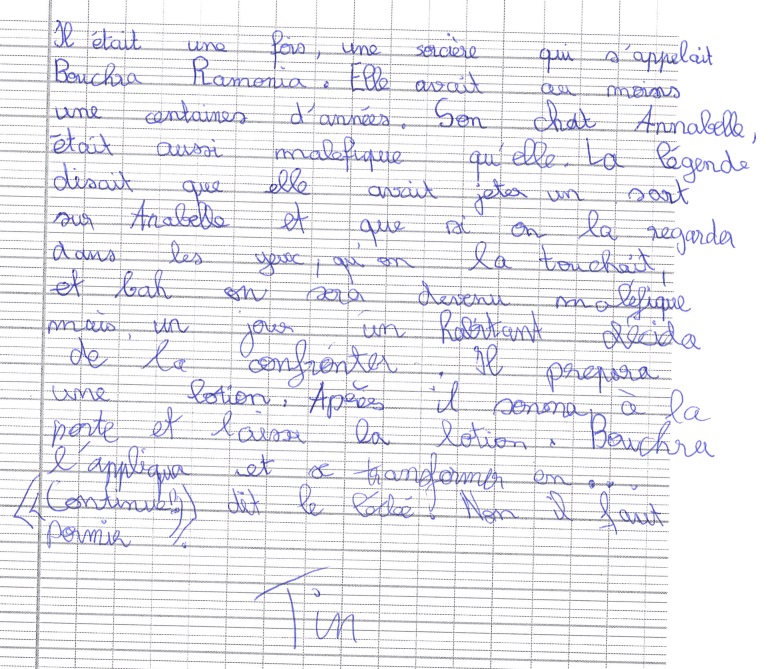 Il était une fois, une sorcière qui s'appelait
Bouchra Ramonia. Elle avait au moins
une centaines d'années. Son chat Annabelle,
était aussi malefique qu'elle. La légende
disait que elle avait jeter un sort
sur Anabelle et que si on la regarder
dans les yeux, qu'on la touchait,
et bah on sera devenu maléfique
mais, un jour un habitant décida
de la confronter. Il prepara
une lotion. Après il sonna à la
porte et laissa la lotion. Bouchra
l'appliqua et se transformer en...
((Continue)) dit le! Non il faut
dormir //.
Fin